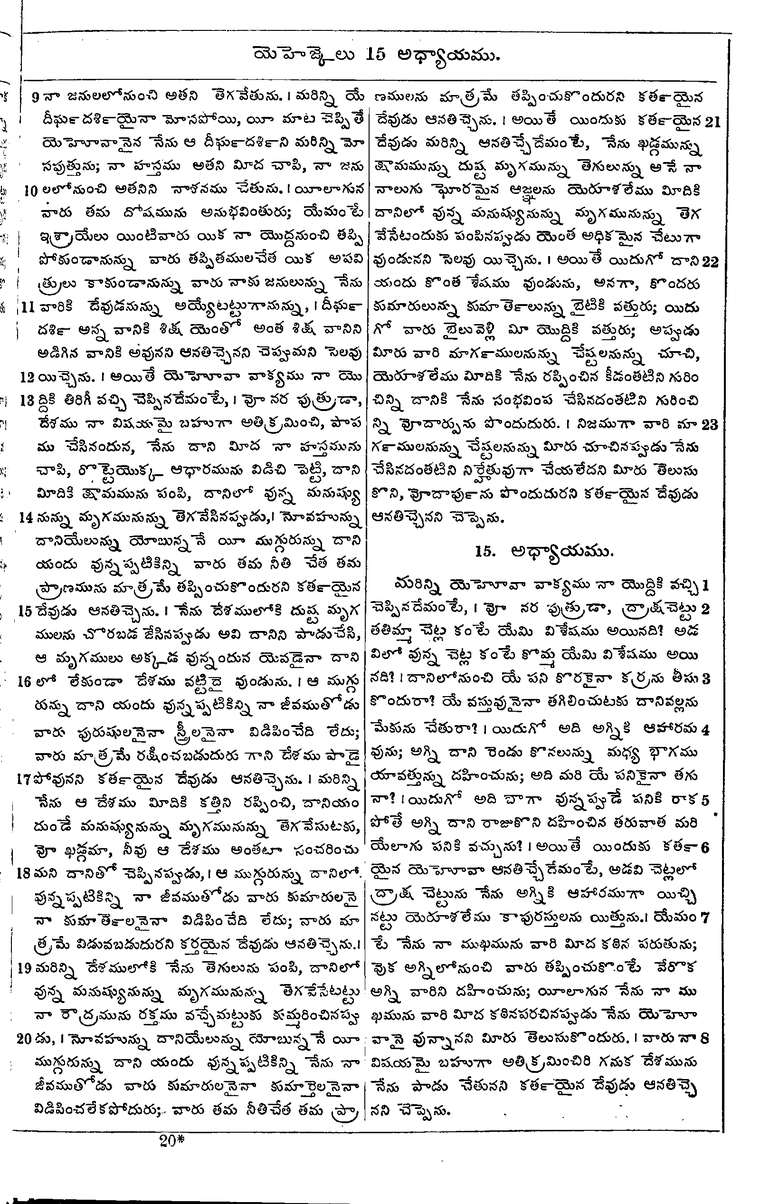 యెహెజ్కేలు 15 అధ్యాయము.
9 నా జనులలోనుంచి అతని తెగవేతును. । మరిన్ని యే
దీర్ఘదర్శియైనా మోసపోయి, యీ మాట చెప్పితే
యెహోవానైన నేను ఆ దీర్ఘదర్శిని మరిన్ని మో
సపుత్తును; నా హస్తము అతని మీద చాపి, నా జను
10 లలోనుంచి అతనిని నాశనము చేతును. । యీలాగున
వారు తమ దోషమును అనుభవింతురు; యేమంటే
ఇశ్రాయేలు యింటివారు యిక నా యొద్దనుంచి తప్పి
పోకుండానున్ను వారు తప్పితములచేత యిక అపవి
త్రులు కాకుండానున్ను వారు నాకు జనులున్ను నేను
11 వారికి దేవుడనున్ను అయ్యేటట్టుగానున్ను, । దీర్ఘ
దర్శి అన్న వానికి శిక్ష యెంతో అంత శిక్ష వానిని
అడిగిన వానికి అవునని ఆనతిచ్చెనని చెప్పుమని సెలవు
12 యిచ్చెను. । అయితే యెహోవా వాక్యము నా యొ
13 ద్దికి తిరిగీ వచ్చి చెప్పినదేమంటే, । వో నర పుత్రుడా,
దేశము నా విషయమై బహుగా అతిక్రమించి, పాప
ము చేసినందున, నేను దాని మీద నా హస్తమును
చాపి, రొట్టెయొక్క ఆధారమును విడిచి పెట్టి, దాని
మీదికి క్షామమును పంపి, దానిలో వున్న మనుష్యు
14 నున్ను మృగమునున్ను తెగవేసినప్పుడు, । నోవహున్ను
దానియేలున్ను యోబున్ననే యీ ముగ్గురున్ను దాని
యందు వున్నప్పటికిన్ని వారు తమ నీతి చేత తమ
ప్రాణమును మాత్రమే తప్పించుకొందురని కర్తయైన
15 దేవుడు ఆనతిచ్చెను. । నేను దేశములోకి దుష్ట మృగ
ములను చొరబడ జేసినప్పుడు అవి దానిని పాడుచేసి,
ఆ మృగములు అక్కడ వున్నందున యెవడైనా దాని
16 లో లేకుండా దేశము వట్టిదై వుండును. । ఆ ముగ్గు
రున్ను దాని యందు వున్నప్పటికిన్ని నా జీవముతోడు
వారు పురుషులనైనా స్త్రీలనైనా విడిపించేది లేదు;
వారు మాత్రమే రక్షించబడుదురు గాని దేశము పాడై
17 పోవునని కర్తయైన దేవుడు ఆనతిచ్చెను. । మరిన్ని
నేను ఆ దేశము మీదికి కత్తిని రప్పించి, దానియం
దుండే మనుష్యునున్ను మృగమునున్ను తెగవేసుటకు,
వో ఖడ్గమా, నీవు ఆ దేశము అంతటా సంచరించు
18 మని దానితో చెప్పినప్పుడు, । ఆ ముగ్గురున్ను దానిలో
వున్నప్పటికిన్ని నా జీవముతోడు వారు కుమారులనై
నా కుమార్తెలనైనా విడిపించేది లేదు; వారు మా
త్రమే విడువబడుదురని కర్తయైన దేవుడు ఆనతిచ్చెను.।
19 మరిన్ని దేశములోకి నేను తెగులును పంపి, దానిలో
వున్న మనుష్యునున్ను మృగమునున్ను తెగవేసేటట్టు
నా రౌద్రమును రక్తము వచ్చేమట్టుకు కుమ్మరించినప్పు
20 డు, । నోవహున్ను దానియేలున్ను యోబున్ననే యీ
ముగ్గురున్ను దాని యందు వున్నప్పటికిన్ని నేను నా
జీవముతోడు వారు కుమారులనైనా కుమార్తెలనైనా
విడిపించలేకపోదురు; వారు తమ నీతిచేత తమ ప్రా
ణములను మాత్రమే తప్పించుకొందురని కర్తయైన
దేవుడు ఆనతిచ్చెను. । అయితే యిందుకు కర్తయైన 21
దేవుడు మరిన్ని ఆనతిచ్చేదేమంటే, నేను ఖడ్గమున్ను
క్షామమున్ను దుష్ట మృగమున్ను తెగులున్ను అనే నా
నాలుగు ఘోరమైన ఆజ్ఞలను యెరూశలేము మీదికి
దానిలో వున్న మనుష్యునున్ను మృగమునున్ను తెగ
వేసేటందుకు పంపినప్పుడు యెంత అధికమైన చేటుగా
వుండునని సెలవు యిచ్చెను. । అయితే యిదుగో దాని 22
యందు కొంత శేషము వుండును, అనగా, కొందరు
కుమారులున్ను కుమార్తెలున్ను బైటికి వత్తురు; యిదు
గో వారు బైలువెళ్లి మీ యొద్దికి వత్తురు; అప్పుడు
మీరు వారి మార్గములనున్ను చేష్టలనున్ను చూచి,
యెరూశలేము మీదికి నేను రప్పించిన కీడంతటిని గురిం
చిన్ని దానికి నేను సంభవింప చేసినదంతటిని గురించి
న్ని వోదార్పును పొందుదురు. । నిజముగా వారి మా 23
ర్గములనున్ను చేష్టలనున్ను మీరు చూచినప్పుడు నేను
చేసినదంతటిని నిర్హేతువుగా చేయలేదని మీరు తెలుసు
కొని, వోదార్పును పొందుదురని కర్తయైన దేవుడు
ఆనతిచ్చెనని చెప్పెను.
15. అధ్యాయము.
మరిన్ని యెహోవా వాక్యము నా యొద్దికి వచ్చి 1
చెప్పినదేమంటే, । వో నర పుత్రుడా, ద్రాక్షచెట్టు 2
తతిమ్మా చెట్ల కంటే యేమి విశేషము అయినది? అడ
విలో వున్న చెట్ల కంటే కొమ్మ యేమి విశేషము అయి
నది? । దానిలోనుంచి యే పని కొరకైనా కర్రను తీసు 3
కొందురా? యే వస్తువునైనా తగిలించుటకు దానివల్లను
మేకును చేతురా? । యిదుగో అది అగ్నికి ఆహారమ 4
వును; అగ్ని దాని రెండు కొనలున్ను మధ్య భాగము
యావత్తున్ను దహించును; అది మరి యే పనికైనా తగు
నా? । యిదుగో అది బాగా వున్నప్పుడే పనికి రాక 5
పోతే అగ్ని దాని రాజుకొని దహించిన తరువాత మరి
యేలాగు పనికి వచ్చును? । అయితే యిందుకు కర్త 6
యైన యెహోవా ఆనతిచ్చేదేమంటే, అడవి చెట్లలో
ద్రాక్ష చెట్టును నేను అగ్నికి ఆహారముగా యిచ్చి
నట్టు యెరూశలేము కాపురస్తులను యిత్తును.। యేమం 7
టే నేను నా ముఖమును వారి మీద కఠిన పరుతును;
వొక అగ్నిలోనుంచి వారు తప్పించుకొంటే వేరొక
అగ్ని వారిని దహించును; యీలాగున నేను నా ము
ఖమును వారి మీద కఠినపరచినప్పుడు నేను యెహో
వానై వున్నానని మీరు తెలుసుకొందురు. । వారు నా 8
విషయమై బహుగా అతిక్రమించిరి గనుక దేశమును
నేను పాడు చేతునని కర్తయైన దేవుడు ఆనతిచ్చె
నని చెప్పెను.
20*